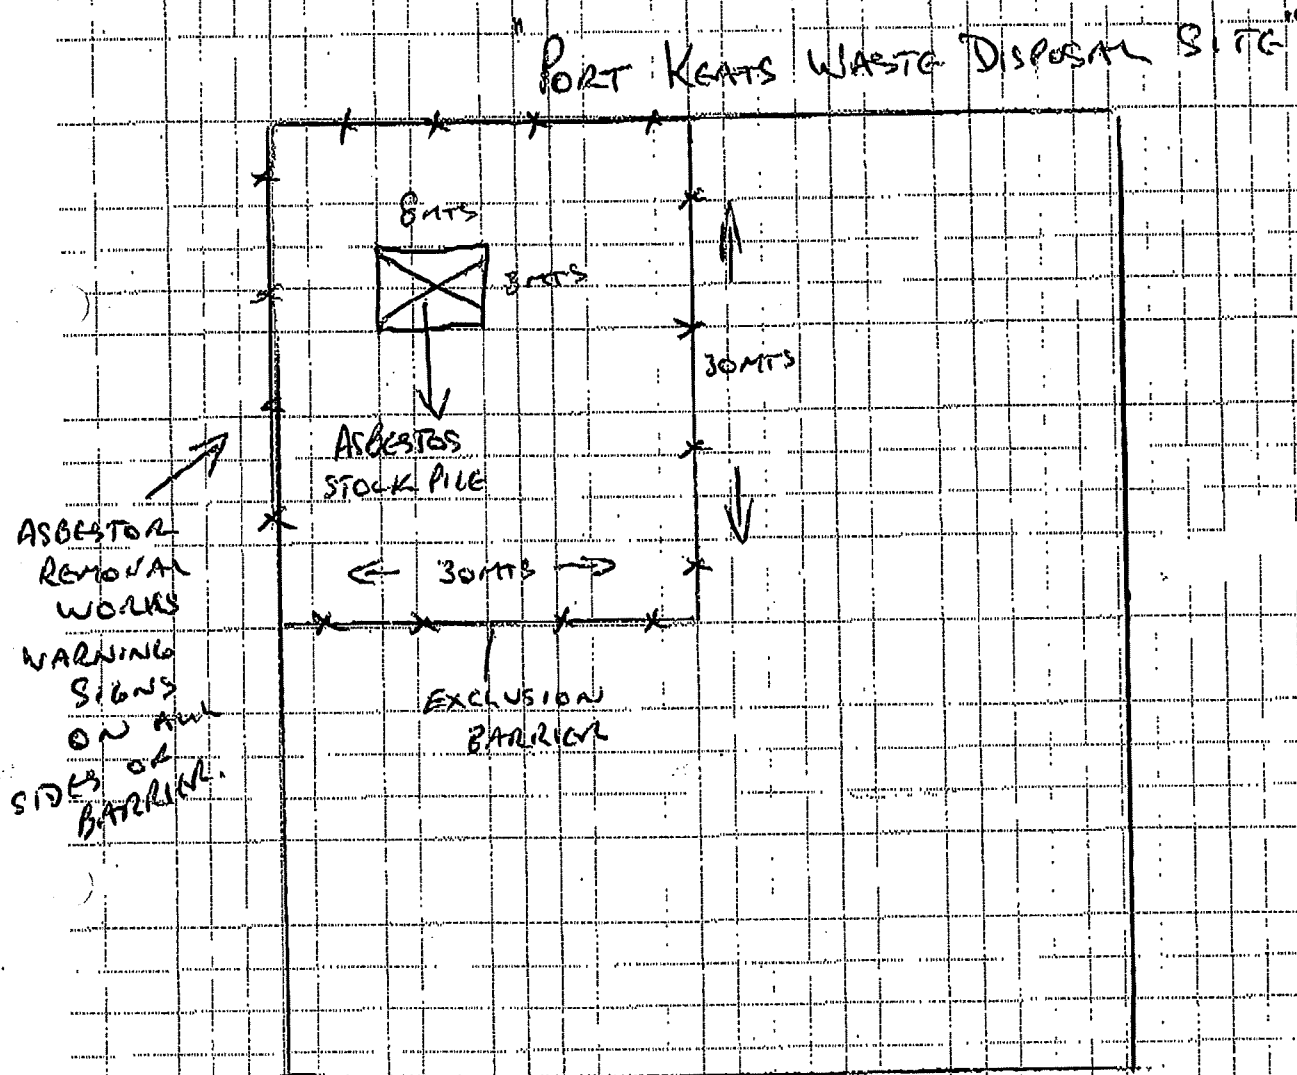 "PORT KEATS WASTE DISPOSAL SITE"
8MTS
8MTS
30MTS
ASBESTOS
STOCK PILE
30MTS
ASBESTOR
REMOVAL
WORKS
WARNING
SIGNS
ON ALL
SIDES OF
BARRIER.
EXCLUSION
BARRIER